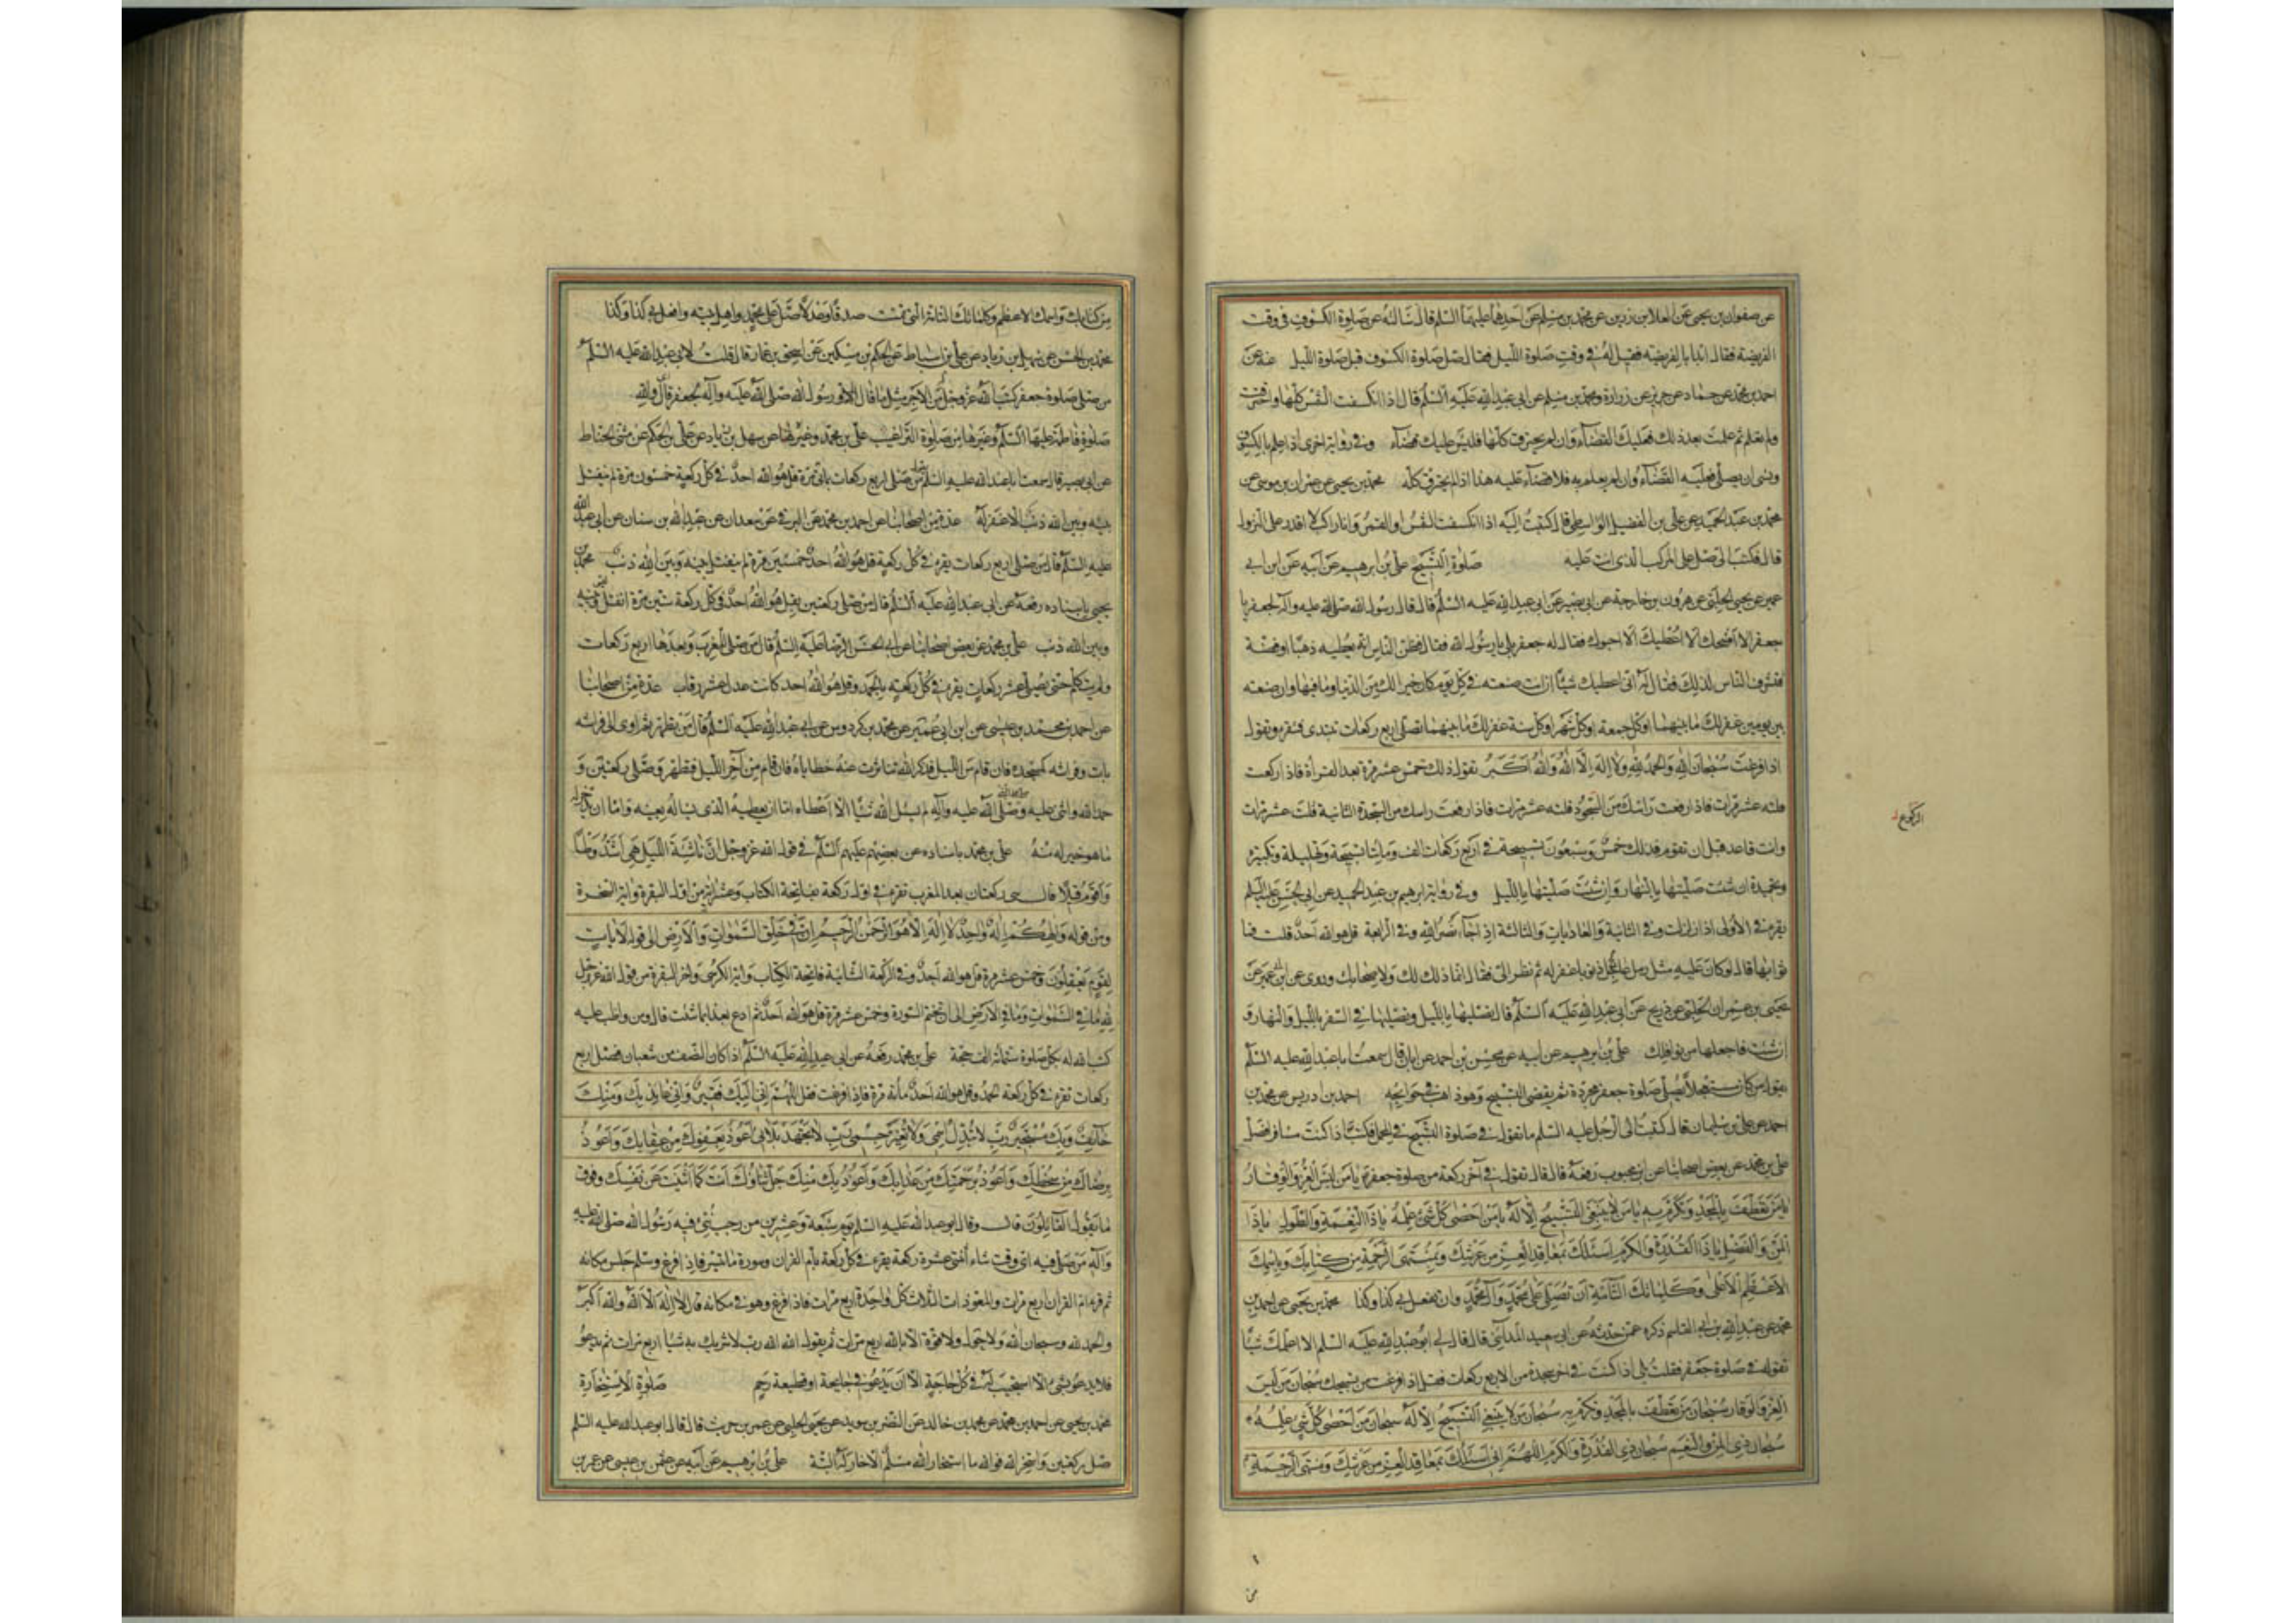 عن صفوان بن يحيى عن العلا بن رزين عن محمد بن مسلم عن احدهما عليهما السلم قال سالته عن صلوة الكسوف في وقت
الفريضة فقال ابدا بالفريضة فقيل له في وقت صلوة الليل فقال صل صلوة الكسوف قبل صلوة الليل عنه عن
احمد بن محمد عن حماد عن حريز عن زرارة ومحمد بن مسلم عن ابي عبد الله عليه السلم قال اذا انكسفت الشمس كلها واحترقت
ولم تعلم ثم علمت بعد ذلك فعليك القضاء وان لم يحترق كلها فليس عليك قضاء وفي رواية اخرى اذا علم بالكسوف
ونسي ان يصلي فعليه القضاء وان لم يعلم به فلا قضاء عليه هذا اذا لم يحترق كله محمد بن يحيى عن عمران بن موسى عن
محمد بن عبد الحميد عن علي بن الفضل الواسطي قال كتبت اليه اذا انكسفت الشمس او القمر وانا راكب لا اقدر على النزول
قال فكتب الي صل على المركب الذي انت عليه صلوة التسبيح علي بن ابرهيم عن ابيه عن ابن ابي
عمير عن يحيى الحلبي عن هرون بن خارجة عن ابي بصير عن ابي عبد الله عليه السلم قال قال رسول الله صلى الله عليه وآله لجعفر يا
جعفر الا امنحك الا اعطيك الا احبوك فقال له جعفر بلى يا رسول الله فقال فظن الناس انه يعطيه ذهبا او فضة
فتشرف الناس لذلك فقال له اني اعطيك شيئا ان انت صنعته في كل يوم كان خيرا لك من الدنيا وما فيها وان صنعته
بين يومين غفر لك ما بينهما او كل جمعة او كل شهر او كل سنة غفر لك ما بينهما تصلي اربع ركعات تبتدى فتقرء وتقول
اذا فرغت سبحان الله والحمد لله ولا اله الا الله والله اكبر تقول ذلك خمس عشرة مرة بعد القرأة فاذا ركعت
قلته عشر مرات فاذا رفعت راسك من السجود قلته عشر مرات فاذا رفعت راسك من السجدة الثانية قلت عشر مرات
الركوع
وانت قاعد قبل ان تقوم فذلك خمس وسبعون تسبيحة في اربع ركعات الف ومائتا تسبيحة وتهليلة وتكبيرة
وتحميدة ان شئت صليتها بالنهار وان شئت صليتها بالليل وفي رواية ابرهيم بن عبد الحميد عن ابي الحسن عليه السلم
يقرء في الاولى اذا زلزلت وفي الثانية والعاديات والثالثة اذا جاء نصر الله وفي الرابعة قل هو الله احد قلت فما
ثوابها قال لو كان عليه مثل رمل عالج ذنوبا غفر له ثم نظر الي فقال انما ذلك لك ولاصحابك وروى عن ابن ابي عمير عن
يحيى بن عمران الحلبي عن ذريح عن ابي عبد الله عليه السلم قال تصليها بالليل وتصليها في السفر بالليل والنهار و
ان شئت فاجعلها من نوافلك علي بن ابرهيم عن ابيه عن محسن بن احمد عن ابان قال سمعت ابا عبد الله عليه السلم
يقول من كان مستعجلا يصلي صلوة جعفر مجردة ثم يقضي التسبيح وهو ذاهب في حوايجه احمد بن ادريس عن محمد بن
احمد عن علي بن سليمان قال كتبت الى الرجل عليه السلم ما تقول في صلوة التسبيح في المحمل فكتب اذا كنت مسافرا فصل
علي بن محمد عن بعض اصحابنا عن ابن محبوب رفعه قال قال تقول في آخر ركعة من صلوة جعفر يا من لبس العز والوقار
يا من تعطف بالمجد وتكرم به يا من لا ينبغي التسبيح الا له يا من احصى كل شيء علمه يا ذا النعمة والطول يا ذا
المن والفضل يا ذا القدرة والكرم اسئلك بمعاقد العز من عرشك وبمنتهى الرحمة من كتابك وباسمك
الاعظم الاعلى وكلماتك التامة ان تصلي على محمد وآل محمد وان تفعل بي كذا وكذا محمد بن يحيى عن احمد بن
محمد عن عبد الله بن ابي القاسم ذكره عمن حدثه عن ابي سعيد المدائني قال قال لي ابو عبد الله عليه السلم الا اعلمك شيئا
تقوله في صلوة جعفر فقلت بلى اذا كنت في اخر سجدة من الاربع ركعات فقل اذا فرغت من تسبيحك سبحان من لبس
العز والوقار سبحان من تعطف بالمجد وتكرم به سبحان من لا ينبغي التسبيح الا له سبحان من احصى كل شيء علمه
سبحان ذي المن والنعم سبحان ذي القدرة والكرم اللهم اني اسئلك بمعاقد العز من عرشك ومنتهى الرحمة
من
من كتابك واسمك الاعظم وكلماتك التامة التي تمت صدقا وعدلا صل على محمد واهل بيته وافعل بي كذا وكذا
محمد بن الحسن عن سهل بن زياد عن علي بن اسباط عن الحكم بن مسكين عن اسحق بن عمار قال قلت لابي عبد الله عليه السلم
من صلى صلوة جعفر كتب الله عز وجل له من الاجر مثل ما قال رسول الله صلى الله عليه وآله لجعفر قال اي والله
صلوة فاطمة عليها السلم وغيرها من صلوة الترغيب علي بن محمد وغيره عن سهل بن زياد عن علي بن الحكم عن مثنى الحناط
عن ابي بصير قال سمعت ابا عبد الله عليه السلم من صلى اربع ركعات بمائتي مرة قل هو الله احد في كل ركعة خمسون مرة لم ينفتل
بينه وبين الله ذنب الا غفر له عدة من اصحابنا عن احمد بن محمد عن البرقي عن سعدان عن عبد الله بن سنان عن ابي عبد الله
عليه السلم قال من صلى اربع ركعات يقرء في كل ركعة قل هو الله احد خمسين مرة لم ينفتل وبينه وبين الله ذنب محمد بن
يحيى باسناده رفعه عن ابي عبد الله عليه السلم قال من صلى ركعتين بقل هو الله احد في كل ركعة ستين مرة انفتل وليس بينه
وبين الله ذنب علي بن محمد عن بعض اصحابنا عن ابي الحسن الرضا عليه السلم قال من صلى المغرب وبعدها اربع ركعات
ولم يتكلم حتى يصلي عشر ركعات يقرء في كل ركعة بالحمد وقل هو الله احد كانت عدل عشر رقاب عدة من اصحابنا
عن احمد بن محمد بن عيسى عن ابن ابي عمير عن محمد بن كردوس عن ابي عبد الله عليه السلم قال من تطهر ثم اوى الى فراشه
بات وفراشه كمسجده فان قام من الليل فذكر الله تناثرت عنه خطاياه فان قام من آخر الليل فتطهر وصلى ركعتين و
حمد الله واثنى عليه وصلى على النبي صلى الله عليه وآله لم يسئل الله شيئا الا اعطاه اما ان يعطيه الذي يساله بعينه واما ان يدخر له
ما هو خير له منه علي بن محمد باسناده عن بعضهم عليهم السلم في قول الله عز وجل ان ناشئة الليل هي اشد وطأ
واقوم قيلا قال هي ركعتان بعد المغرب تقرء في اول ركعة بفاتحة الكتاب وعشر آية من اول البقرة واية السخرة
ومن قوله والهكم اله واحد لا اله الا هو الرحمن الرحيم ان في خلق السموات والارض الى قوله لايات
لقوم يعقلون وخمس عشرة مرة قل هو الله احد وفي الركعة الثانية فاتحة الكتاب واية الكرسي واخر البقرة من قول الله عز وجل
لله ما في السموات وما في الارض الى ان تختم السورة وخمس عشرة مرة قل هو الله احد ثم ادع بعد بما شئت قال ومن واظب عليه
كتب الله له بكل صلوة ستمائة الف حجة علي بن محمد رفعه عن ابي عبد الله عليه السلم اذا كان النصف من شعبان فصل اربع
ركعات تقرء في كل ركعة الحمد وقل هو الله احد مائة مرة فاذا فرغت فقل اللهم اني اليك فقير واني عائذ بك ومنك
خائف وبك مستجير رب لا تبدل اسمى ولا تغير جسمى رب لا تجهد بلائي اعوذ بعفوك من عقابك واعوذ
برضاك من سخطك واعوذ برحمتك من عذابك واعوذ بك منك جل ثناؤك انت كما اثنيت على نفسك وفوق
ما يقول القائلون قال وقال ابو عبد الله عليه السلم يوم سبعة وعشرين من رجب نبئ فيه رسول الله صلى الله عليه
وآله من صلى فيه اي وقت شاء اثنتي عشرة ركعة يقرء في كل ركعة بام القران وسورة ما تيسر فاذا فرغ وسلم جلس مكانه
ثم قرء ام القران اربع مرات والمعوذات الثلاث كل واحدة اربع مرات فاذا فرغ وهو في مكانه قال لا اله الا الله والله اكبر
والحمد لله وسبحان الله ولا حول ولا قوة الا بالله اربع مرات ثم يقول الله الله ربي لا اشرك به شيئا اربع مرات ثم يدعو
فلا يدعو بشيء الا استجيب له في كل حاجة الا ان يدعو في جايحة او قطيعة رحم صلوة الاستخارة
محمد بن يحيى عن احمد بن محمد عن محمد بن خالد عن النضر بن سويد عن يحيى الحلبي عن عمرو بن حريث قال قال ابو عبد الله عليه السلم
صل ركعتين واستخر الله فوالله ما استخار الله مسلم الا خار له البتة علي بن ابرهيم عن ابيه عن عثمن بن عيسى عن عمرو بن